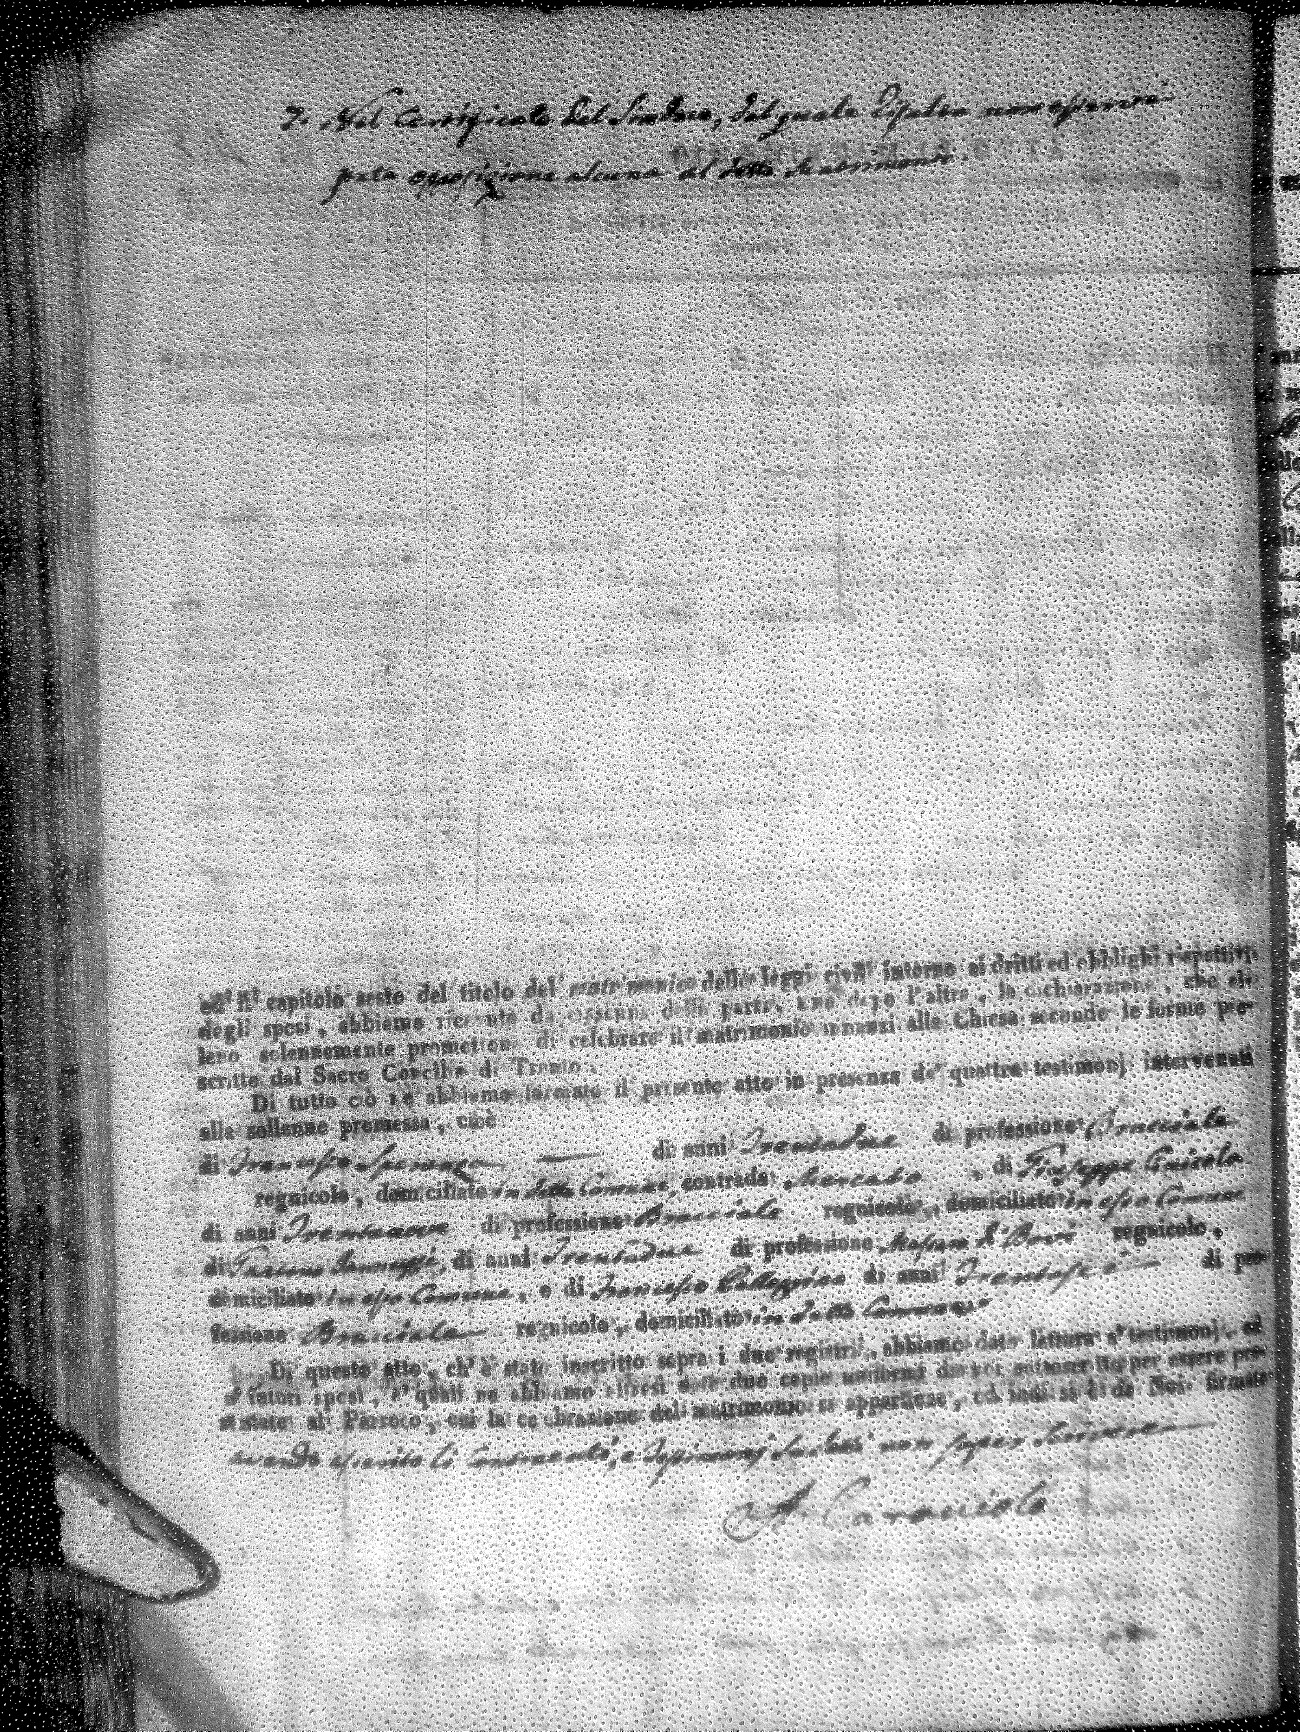 7. Nel Certificato del Sindaco, dal quale
opposizione alcuna al detto Matrimonio.
ed il capitolo sesto del titolo del matrimonio delle leggi civili intorno ai dritti ed obblighi rispettivi
degli sposi, abbiamo ricevuto da ciascuna delle parti, una dopo l'altra, la dichiarazione, che el-
leno solennemente promettono di celebrare il matrimonio innanzi alla Chiesa secondo le forme pre-
scritte dal Sacro Concilio di Trento.
Di tutto ciò ne abbiamo formato il presente atto in presenza de' quattro testimonj intervenuti
alla sollenne promessa, cioè
di Francesco di anni Trentadue di professione Bracciale
regnicolo, domiciliato in detto Comune, contrada Mercato, di Giuseppe
di anni Trentanove di professione Bracciale regnicolo, domiciliato in esso Comune
di di anni Trentadue di professione regnicolo,
domiciliato in esso Comune, e di Francesco di anni di pro-
fessione Bracciale regnicolo, domiciliato in detto Comune
Di questo atto, ch'è stato inscritto sopra i due registri, abbiamo dato lettura a' testimonj, ed
a' futuri sposi, a' quali ne abbiamo altresì date due copie uniformi da noi sottoscritte per essere pre-
sentate al Parroco, cui la celebrazione del matrimonio si appartiene, ed indi si è da Noi firmato
avendo asserito li Contraenti, e Testimonj suddetti non saper scrivere
A. Caracciolo